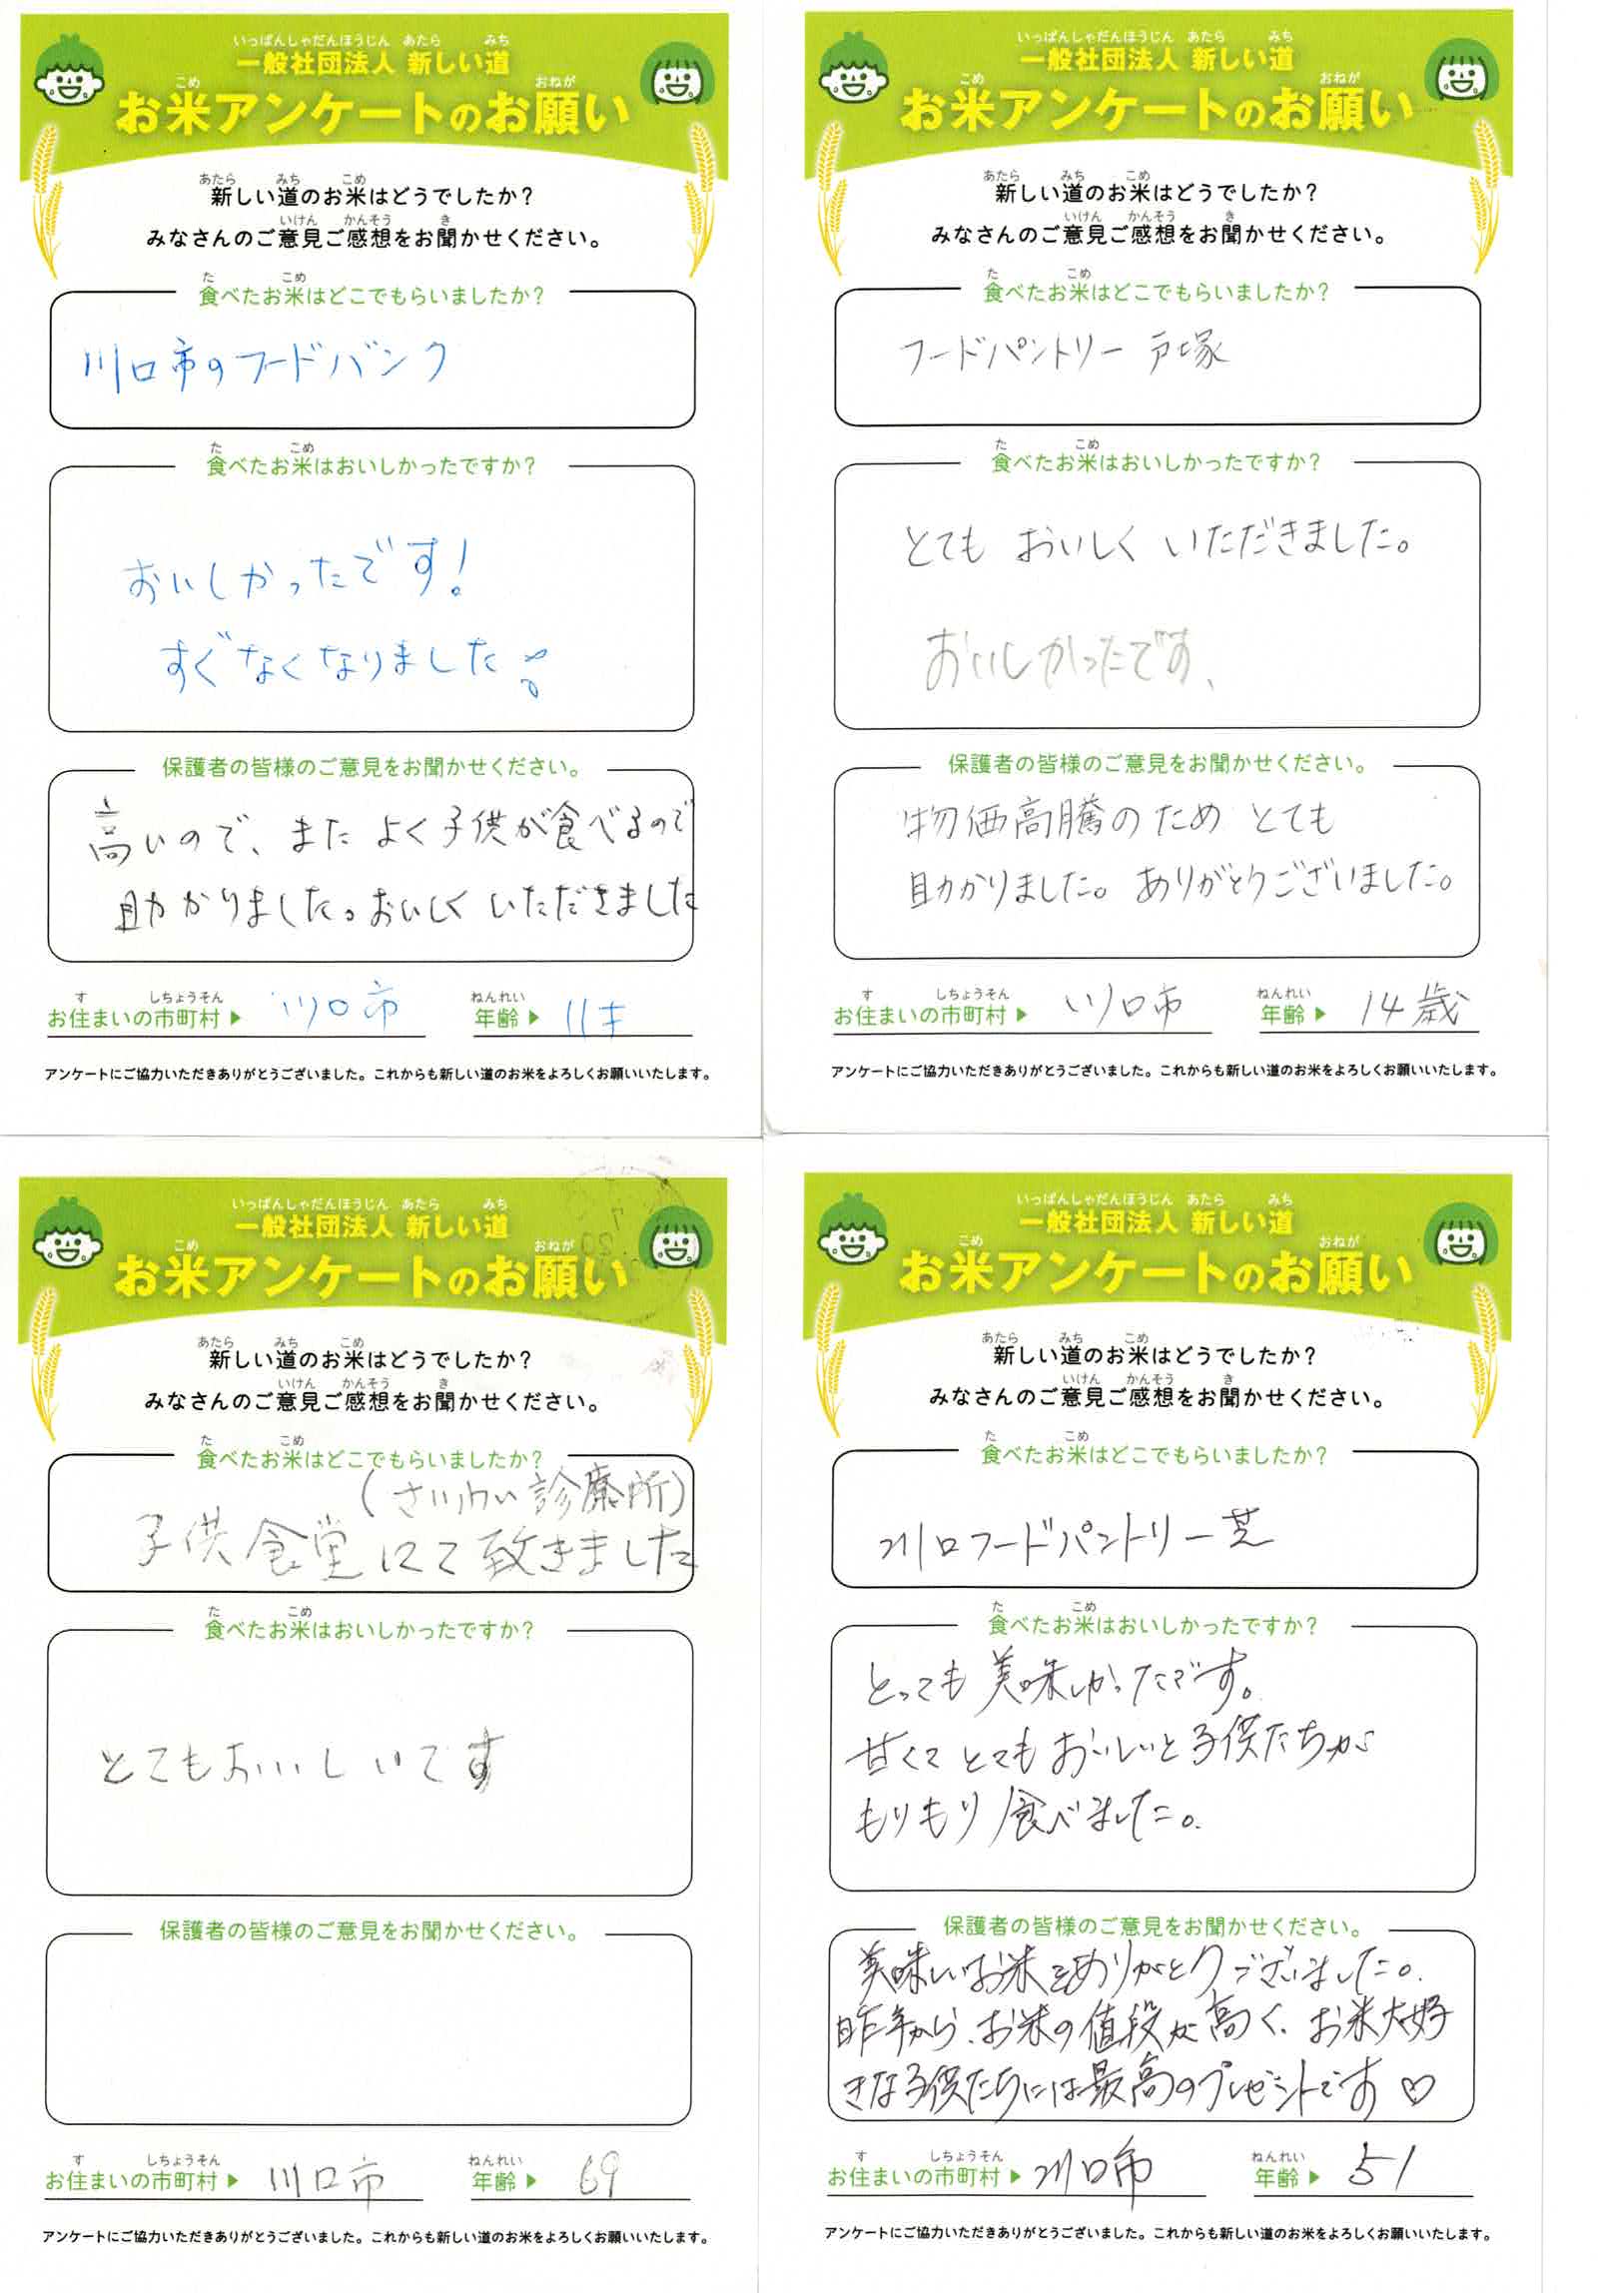 いっぱんしゃだんほうじん あたら みち
一般社団法人 新しい道
こめ おねが
お米アンケートのお願い
あたら みち こめ
新しい道のお米はどうでしたか？
いけん かんそう き
みなさんのご意見ご感想をお聞かせください。
た こめ
食べたお米はどこでもらいましたか？
川口市のフードバンク
た こめ
食べたお米はおいしかったですか？
おいしかったです！
すぐなくなりました
保護者の皆様のご意見をお聞かせください。
高いので、また よく子供が食べるので
助かりました。おいしく いただきました
す しちょうそん ねんれい
お住まいの市町村▶ 川口市 年齢▶ 11才
アンケートにご協力いただきありがとうございました。これからも新しい道のお米をよろしくお願いいたします。
いっぱんしゃだんほうじん あたら みち
一般社団法人 新しい道
こめ おねが
お米アンケートのお願い
あたら みち こめ
新しい道のお米はどうでしたか？
いけん かんそう き
みなさんのご意見ご感想をお聞かせください。
た こめ
食べたお米はどこでもらいましたか？
フードパントリー 戸塚
た こめ
食べたお米はおいしかったですか？
とても おいしく いただきました。
おいしかったです、
保護者の皆様のご意見をお聞かせください。
物価高騰のため とても
助かりました。ありがとうございました。
す しちょうそん ねんれい
お住まいの市町村▶ 川口市 年齢▶ 14歳
アンケートにご協力いただきありがとうございました。これからも新しい道のお米をよろしくお願いいたします。
いっぱんしゃだんほうじん あたら みち
一般社団法人 新しい道
こめ おねが
お米アンケートのお願い
あたら みち こめ
新しい道のお米はどうでしたか？
いけん かんそう き
みなさんのご意見ご感想をお聞かせください。
た こめ
食べたお米はどこでもらいましたか？
(さいわい診療所)
子供食堂にて致きました
た こめ
食べたお米はおいしかったですか？
とてもおいしいです
保護者の皆様のご意見をお聞かせください。
す しちょうそん ねんれい
お住まいの市町村▶ 川口市 年齢▶ 69
アンケートにご協力いただきありがとうございました。これからも新しい道のお米をよろしくお願いいたします。
いっぱんしゃだんほうじん あたら みち
一般社団法人 新しい道
こめ おねが
お米アンケートのお願い
あたら みち こめ
新しい道のお米はどうでしたか？
いけん かんそう き
みなさんのご意見ご感想をお聞かせください。
た こめ
食べたお米はどこでもらいましたか？
川口フードパントリー芝
た こめ
食べたお米はおいしかったですか？
とっても美味しかったです。
甘くて とてもおいしいと子供たちが
もりもり食べました。
保護者の皆様のご意見をお聞かせください。
美味しいお米をありがとうございました。
昨年から、お米の値段が高く、お米大好
きな子供たちには最高のプレゼントです♡
す しちょうそん ねんれい
お住まいの市町村▶ 川口市 年齢▶ 51
アンケートにご協力いただきありがとうございました。これからも新しい道のお米をよろしくお願いいたします。